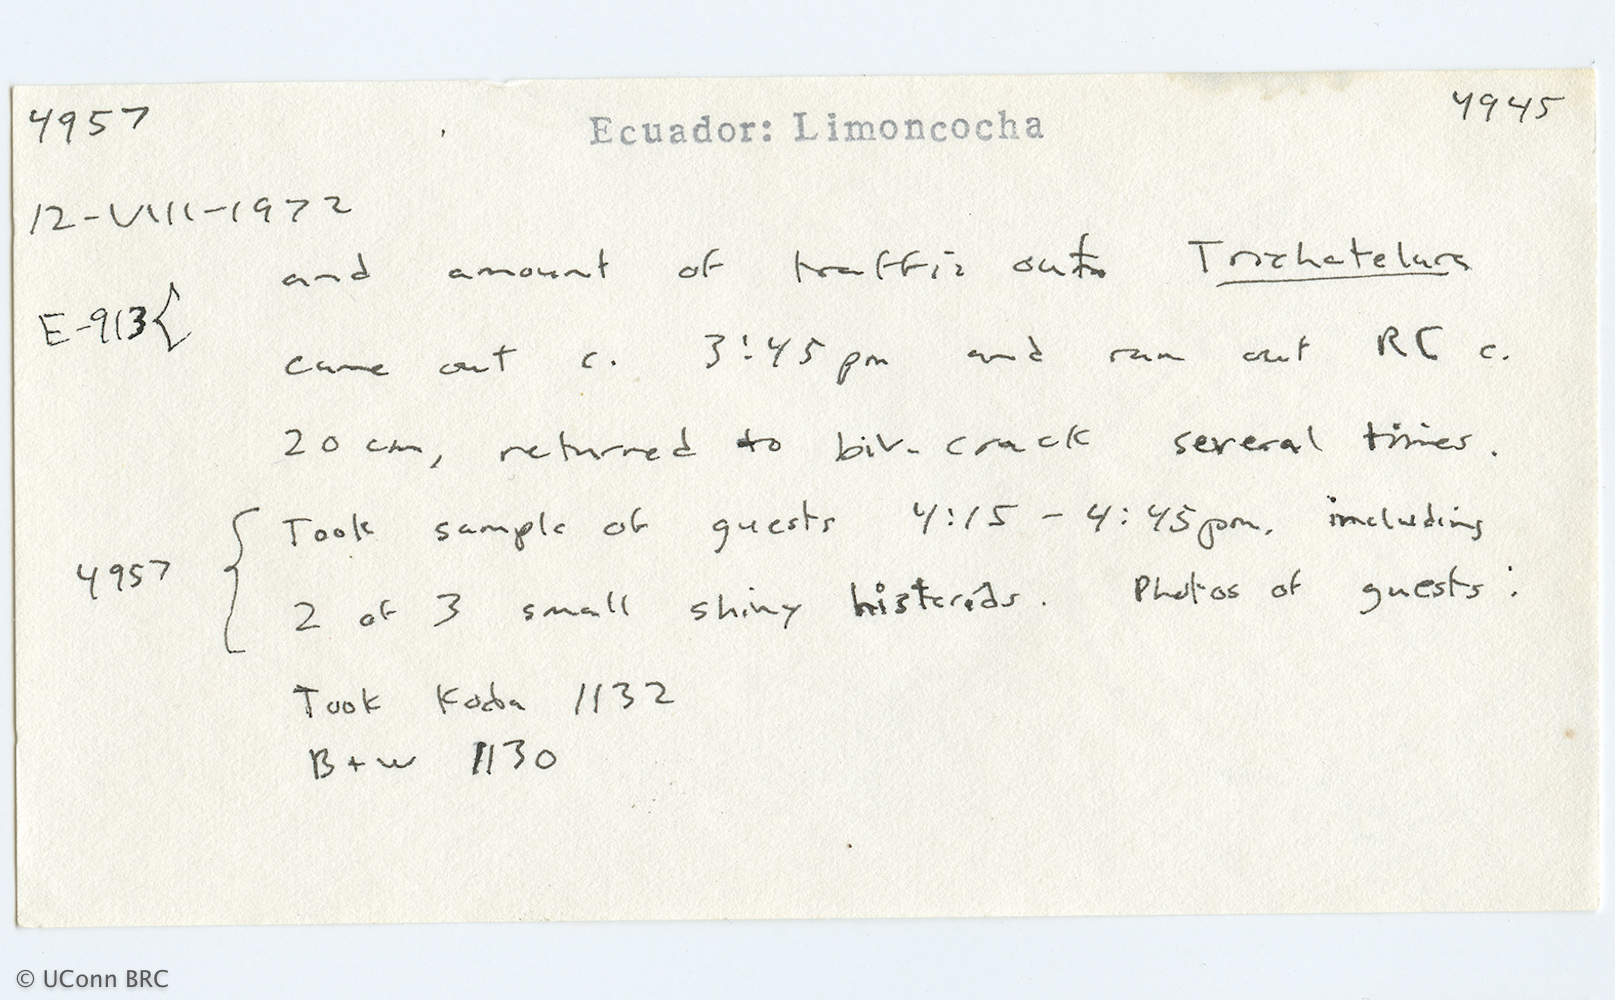 4957 Ecuador: Limoncocha 4945
12-VIII-1972
and amount of traffic out. Trichatelura
E-913{ came out c. 3:45 pm and ran out RC c.
20 cm, returned to biv. crack several times.
Took sample of guests 4:15 - 4:45pm, including
4957 { 2 of 3 small shiny histerids. Photos of guests:
Took Koda 1132
B+W 1130
© UConn BRC